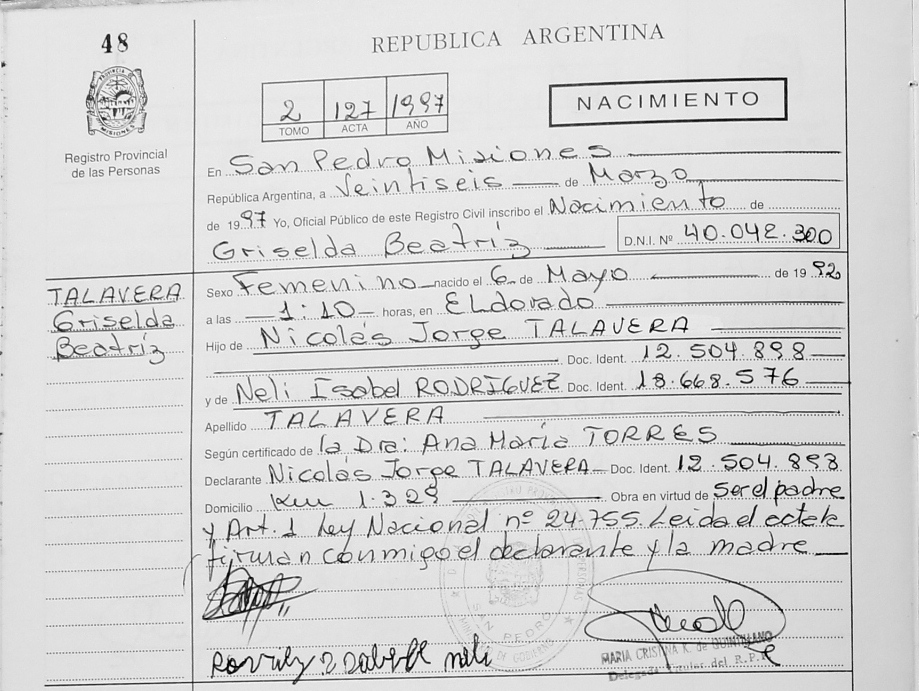 48
REPUBLICA ARGENTINA
PROVINCIA DE
MISIONES
2 127 1997
TOMO ACTA AÑO
NACIMIENTO
Registro Provincial
de las Personas
En San Pedro Misiones
República Argentina, a Veintiseis de Marzo
de 1997 Yo, Oficial Público de este Registro Civil inscribo el Nacimiento de
Griselda Beatríz D.N.I. Nº 40.042.300
TALAVERA
Griselda
Beatríz
Sexo Femenino nacido el 6 de Mayo de 1992
a las 1:10 horas, en ELdorado
Hijo de Nicolás Jorge TALAVERA
Doc. Ident. 12.504.898
y de Neli Isabel RODRIGUEZ Doc. Ident. 18.668.576
Apellido TALAVERA
Según certificado de la Dra: Ana María TORRES
Declarante Nicolás Jorge TALAVERA Doc. Ident. 12.504.898
Domicilio Km 1.329 Obra en virtud de Ser el padre
y Art. 1 Ley Nacional nº 24.755. Leida el acta la
firman conmigo el declarante y la madre
SAN PEDRO
neli
MARIA CRISTINA K. de QUINTILLANO
Delegada Titular del R.P.